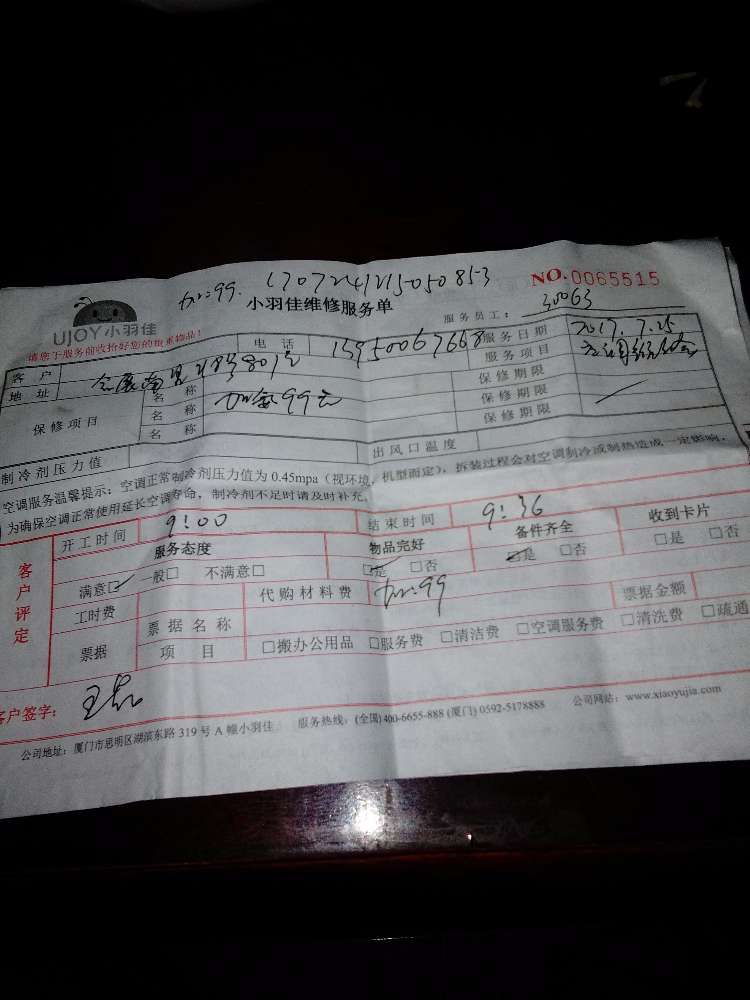 170724121505085-3
NO.0065515
UJOY小羽佳
小羽佳维修服务单
服务员工： 30063
请您于服务前收拾好您的贵重物品！
客户 电话 15950067668 服务日期 2017.7.25
地址 服务项目
保修项目 名称 加氟99元 保修期限
名称 保修期限
名称 保修期限
制冷剂压力值 出风口温度
空调服务温馨提示：空调正常制冷剂压力值为 0.45mpa（视环境，机型而定），拆装过程会对空调制冷或制热造成一定影响，
为确保空调正常使用延长空调寿命，制冷剂不足时请及时补充。
客户评定
开工时间 9:00 结束时间 9:36
服务态度 物品完好 备件齐全 收到卡片
满意☑ 一般□ 不满意□ ☑是 □否 ☑是 □否 □是 □否
工时费 代购材料费 票据金额
票据 票据名称
项目 □搬办公用品 □服务费 □清洁费 □空调服务费 □清洗费 □疏通
客户签字：
公司地址：厦门市思明区湖滨东路 319 号 A 幢小羽佳 服务热线：(全国) 400-6655-888 (厦门) 0592-5178888 公司网站：www.xiaoyujia.com